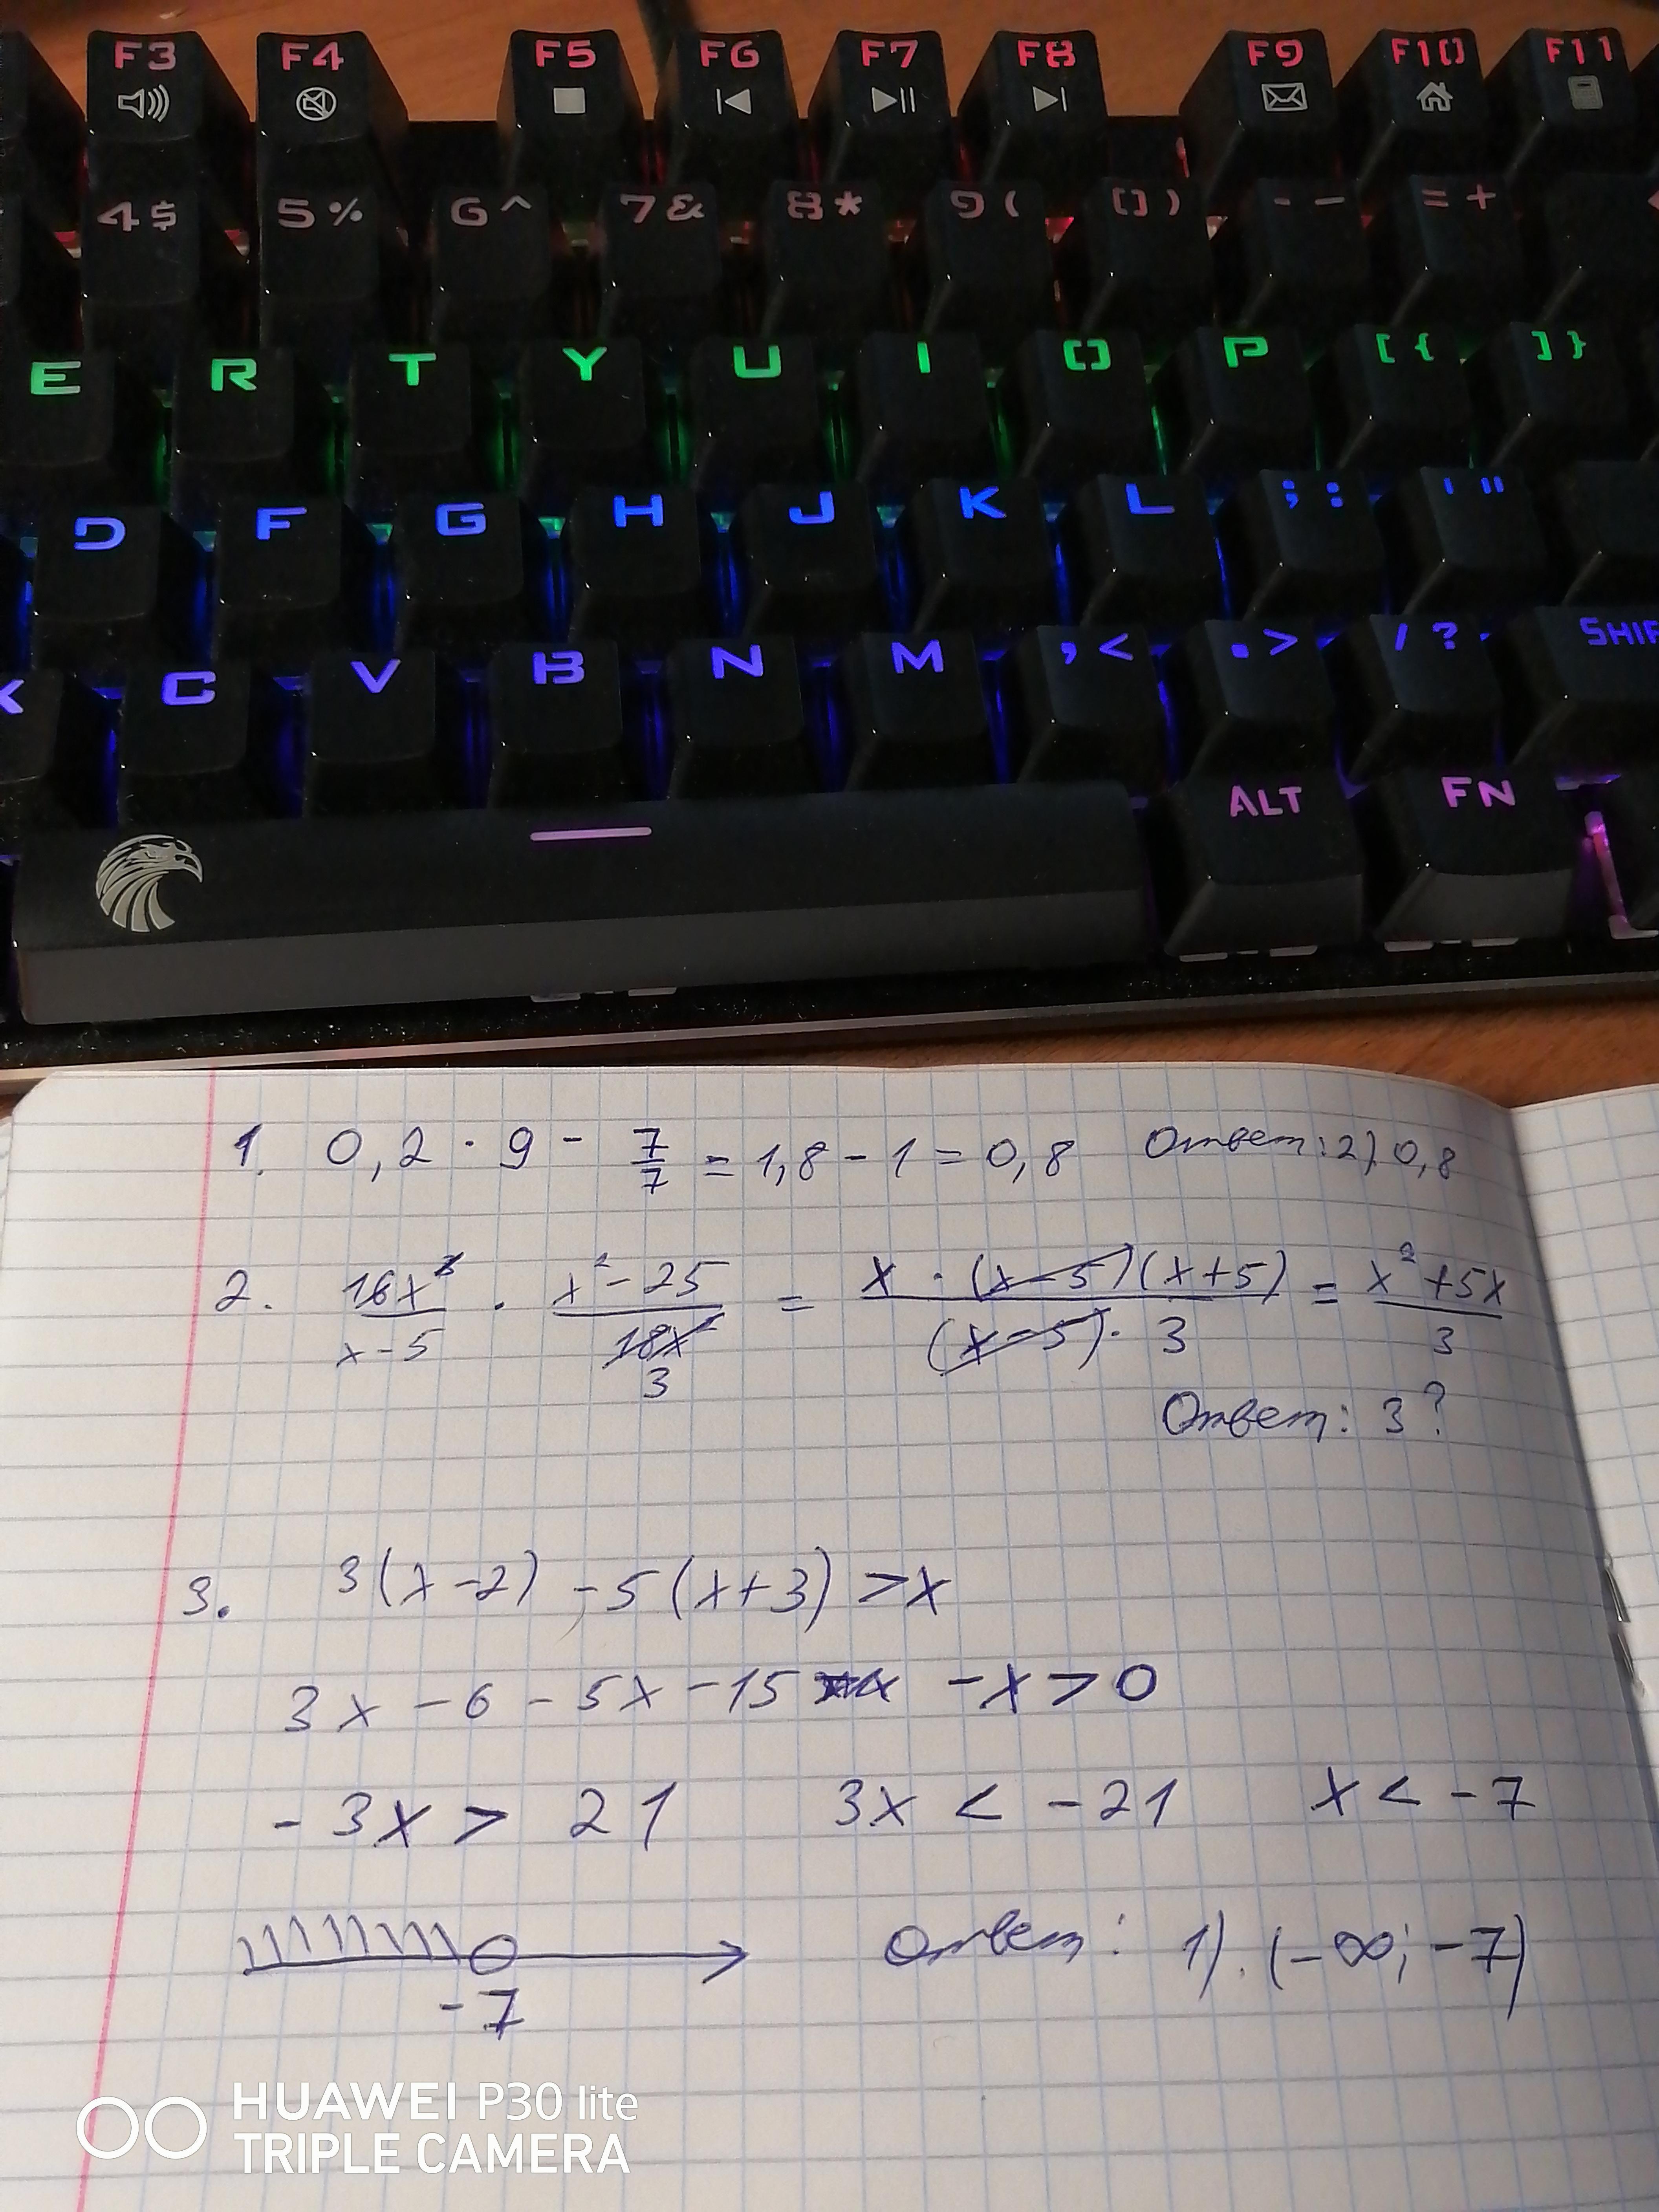 F3 F4 F5 F6 F7 F8 F9 F10 F11
4$ 5% 6^ 7& 8* 9( 0) - _ =+
E R T Y U I O P [{ ]}
D F G H J K L ;: '"
X C V B N M ,< .> /?
ALT FN
1. 0,2 · 9 - 7/7 = 1,8 - 1 = 0,8 Ответ: 2) 0,8
2. x-5 · x² - 25 / 18x² 3 = x · (x-5)(x+5) / (x-5) · 3 = x² + 5x / 3
Ответ: 3?
3. 3(x-2) -5(x+3) > x
3x - 6 - 5x - 15 - x > 0
-3x > 21 3x < -21 x < -7
-7 Ответ: 1). (-∞; -7)
HUAWEI P30 lite
TRIPLE CAMERA